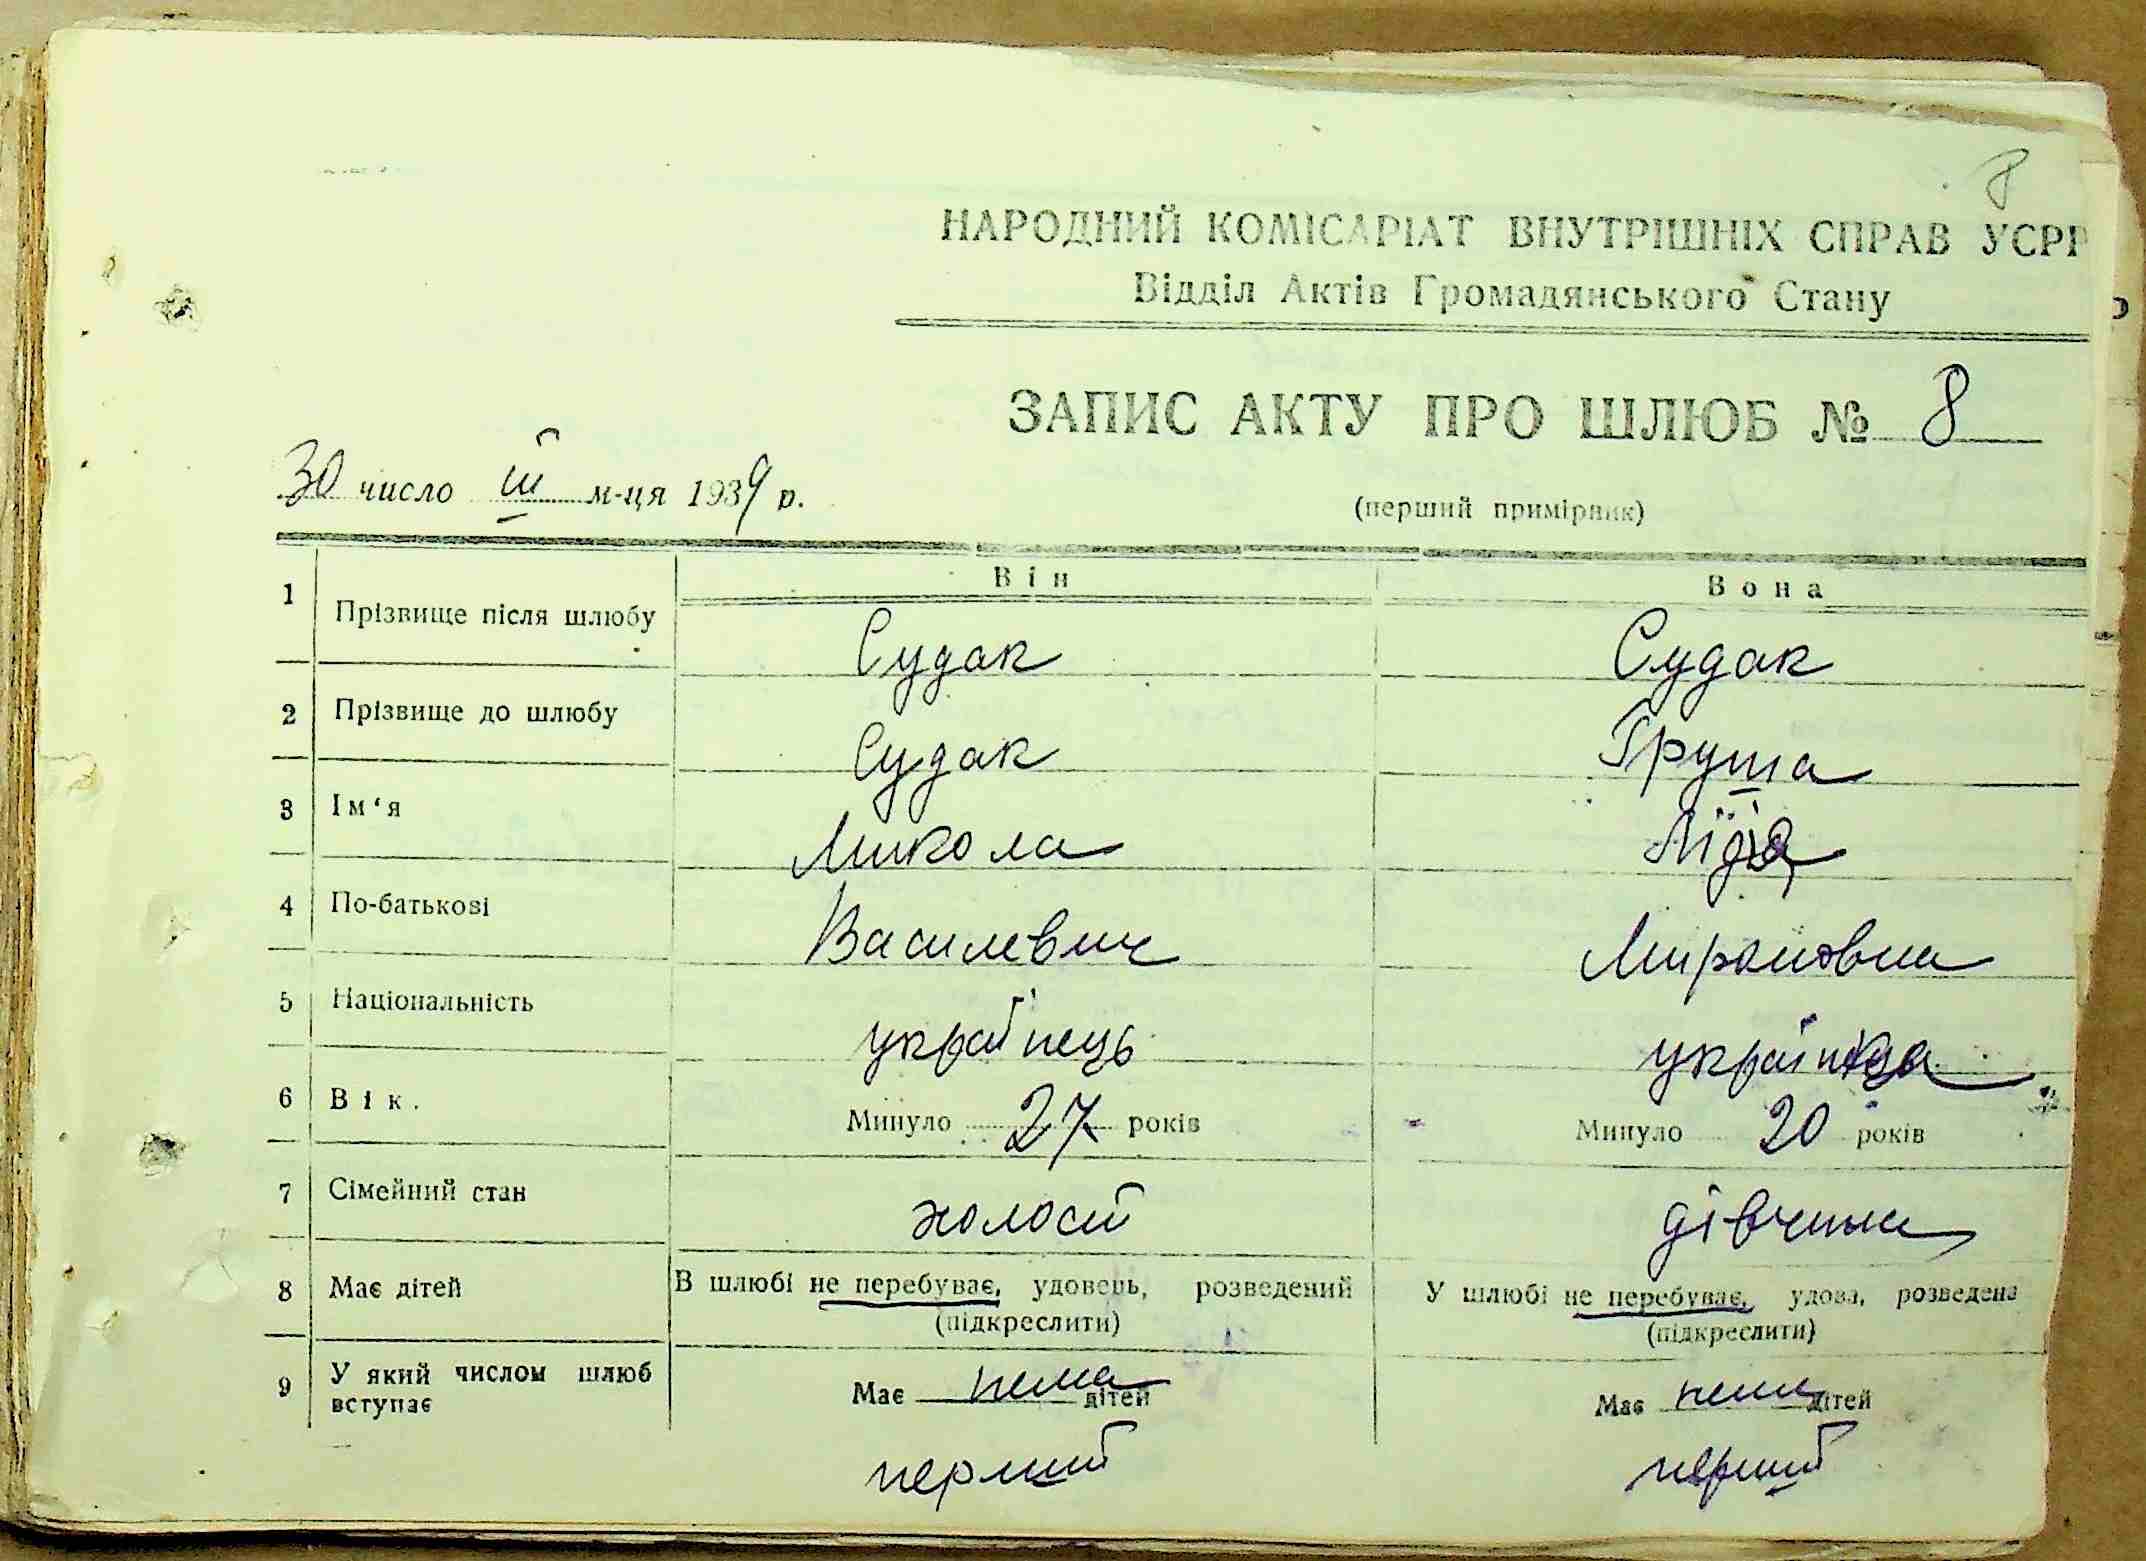 8
НАРОДНИЙ КОМІСАРІАТ ВНУТРІШНІХ СПРАВ УСРР
Відділ Актів Громадянського Стану
ЗАПИС АКТУ ПРО ШЛЮБ № 8
30 число ІІІ м-ця 1939 р.
(перший примірник)
Він Вона
1 Прізвище після шлюбу Судак Судак
2 Прізвище до шлюбу Судак Груша
3 Ім'я Микола Лідія
4 По-батькові Василевич Мироновна
5 Національність українець українка
6 Вік. Минуло 27 років Минуло 20 років
7 Сімейний стан холостий дівчина
8 Має дітей В шлюбі не перебуває, удовець, розведений У шлюбі не перебуває, удова, розведена
(підкреслити) (підкреслити)
9 У який числом шлюб вступає Має нема дітей Має нема дітей
перший перший